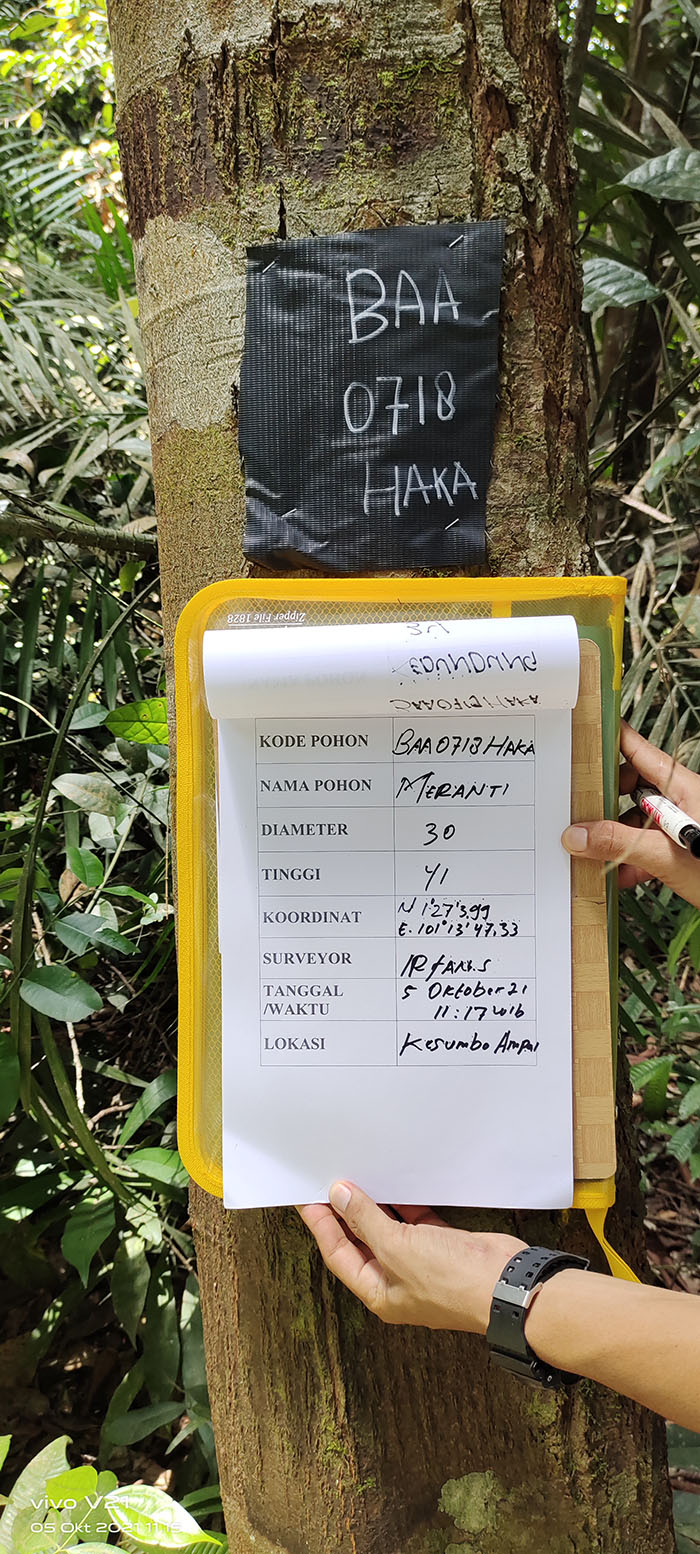 BAA
0718
HAKA
Zipper File 1828
KODE POHON BAA0718HAKA
NAMA POHON MERANTI
DIAMETER 30
TINGGI 41
KOORDINAT N 1°27'3,99
E. 101°13'47.33
SURVEYOR IRFAN.S
TANGGAL 5 Oktober 21
/WAKTU 11:17 WIB
LOKASI Kesumbo Ampai
vivo Y21
05 Okt 2021 11.15